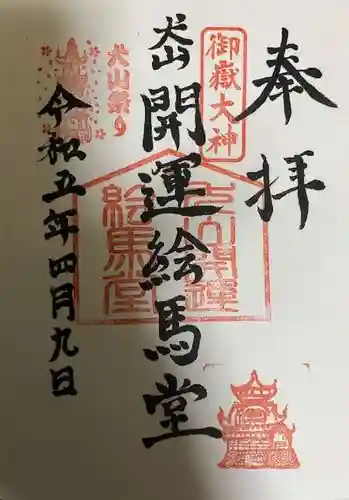 奉拝
御嶽大神
犬山
開運絵馬堂
犬山開運
絵馬堂
犬山祭り
令和五年四月九日